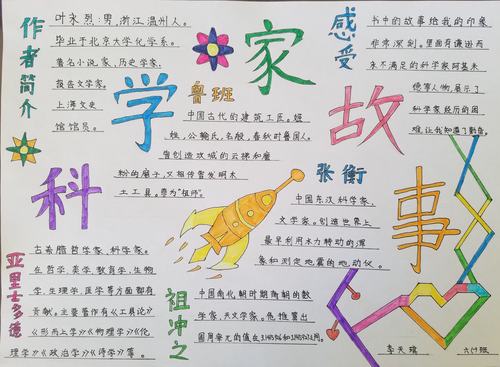 作者简介
叶永烈:男,浙江温州人。
毕业于北京大学化学系。
著名小说家、历史学家、
报告文学家。
上海文史
馆馆员。
科学家故事
感受
书中的故事给我的印象
非常深刻。里面有谦逊而
永不满足的科学家阿基米
德等人物,展示了
科学家经历的困
难,让我知道了勤奋。
鲁班
中国古代的建筑工匠。姬
姓,公输氏,名般,春秋时鲁国人。
曾创造攻城的云梯和磨
粉的磨子,又相传曾发明木
土工具。尊为“祖师”。
张衡
中国东汉科学家、
文学家。创造世界上
最早利用水力转动的浑
象和测定地震的地动仪。
亚里士多德
古希腊哲学家、科学家。
在哲学、美学、教育学、生物
学、生理学、医学等方面都有
贡献。主要著作有《工具论》
《形而上学》《物理学》《伦
理学》《政治学》《诗学》等。
祖冲之
中国南北朝时期南朝的数
学家、天文学家。他推算出
圆周率π的值在3.1415926和3.1415927之间。
李天瑞